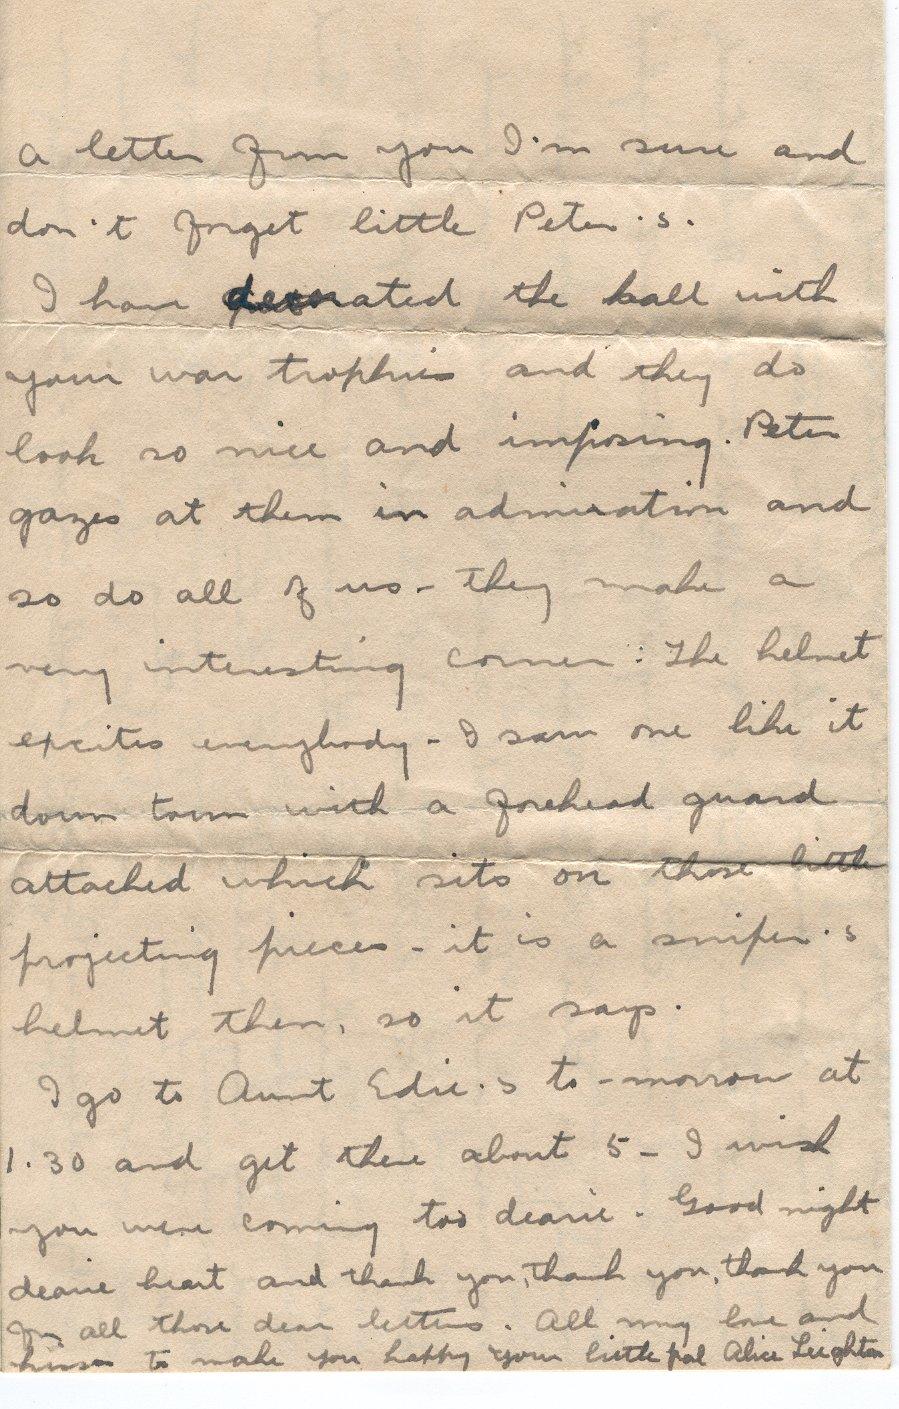 a letter from you I'm sure and
don't forget little Peter's.
I have decorated the hall with
your war trophies and they do
look so nice and imposing. Peter
gazes at them in admiration and
so do all of us - they make a
very interesting corner : The helmet
excites everybody - I saw one like it
down town with a forehead guard
attached which sits on those little
projecting pieces - it is a sniper's
helmet then, so it says.
I go to Aunt Edie's to-morrow at
1.30 and get there about 5 - I wish
you were coming too dearie. Good night
dearie heart and thank you, thank you, thank you
for all those dear letters. All my love and
kisses to make you happy your little pal Alice Leighton